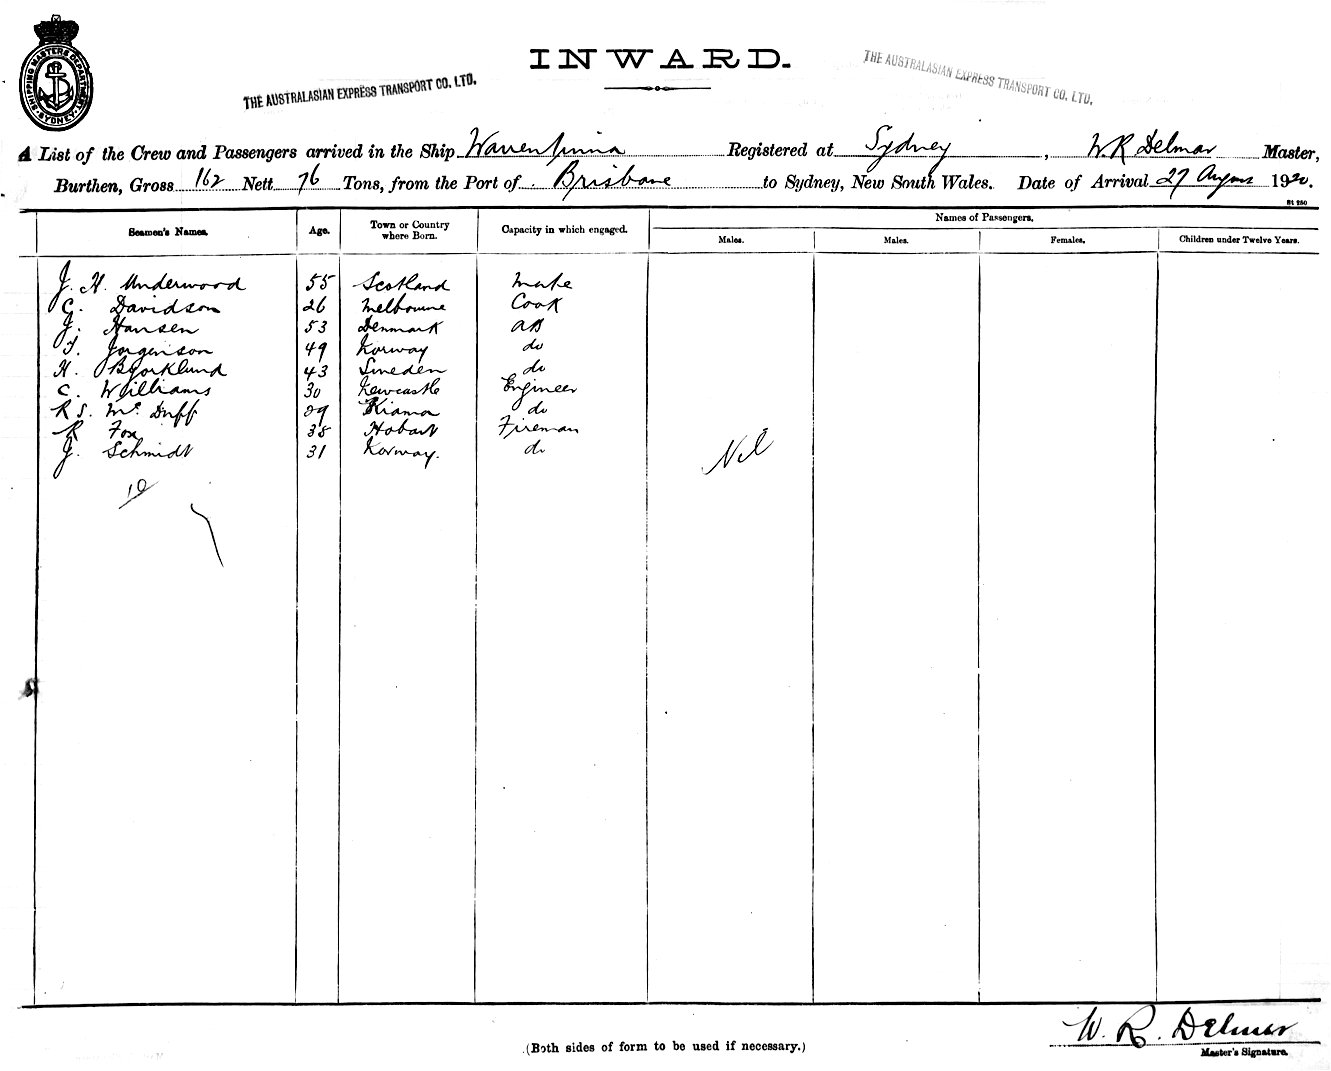 SHIPPING MASTERS DEPARTMENT
SYDNEY
INWARD.
THE AUSTRALASIAN EXPRESS TRANSPORT CO. LTD.
THE AUSTRALASIAN EXPRESS TRANSPORT CO. LTD.
A List of the Crew and Passengers arrived in the Ship Warrentinna Registered at Sydney, W. R Delmar Master,
Burthen, Gross 162 Nett 76 Tons, from the Port of Brisbane to Sydney, New South Wales. Date of Arrival 27 August 1920.
Seamen's Names. Age. Town or Country where Born. Capacity in which engaged. Names of Passengers.
Males. Males. Females. Children under Twelve Years.
J. H. Underwood 55 Scotland mate
C. Davidson 26 Melbourne Cook
J. Hansen 53 Denmark AB
T. Jorgenson 49 Norway do
H. Bjorklund 43 Sweden do
C. Williams 30 Newcastle Engineer
R S. McDuff 29 Kiama do
R Fox 38 Hobart Fireman
J. Schmidt 31 Norway. do
Nil
10
(Both sides of form to be used if necessary.)
W. R. Delmar
Master's Signature.